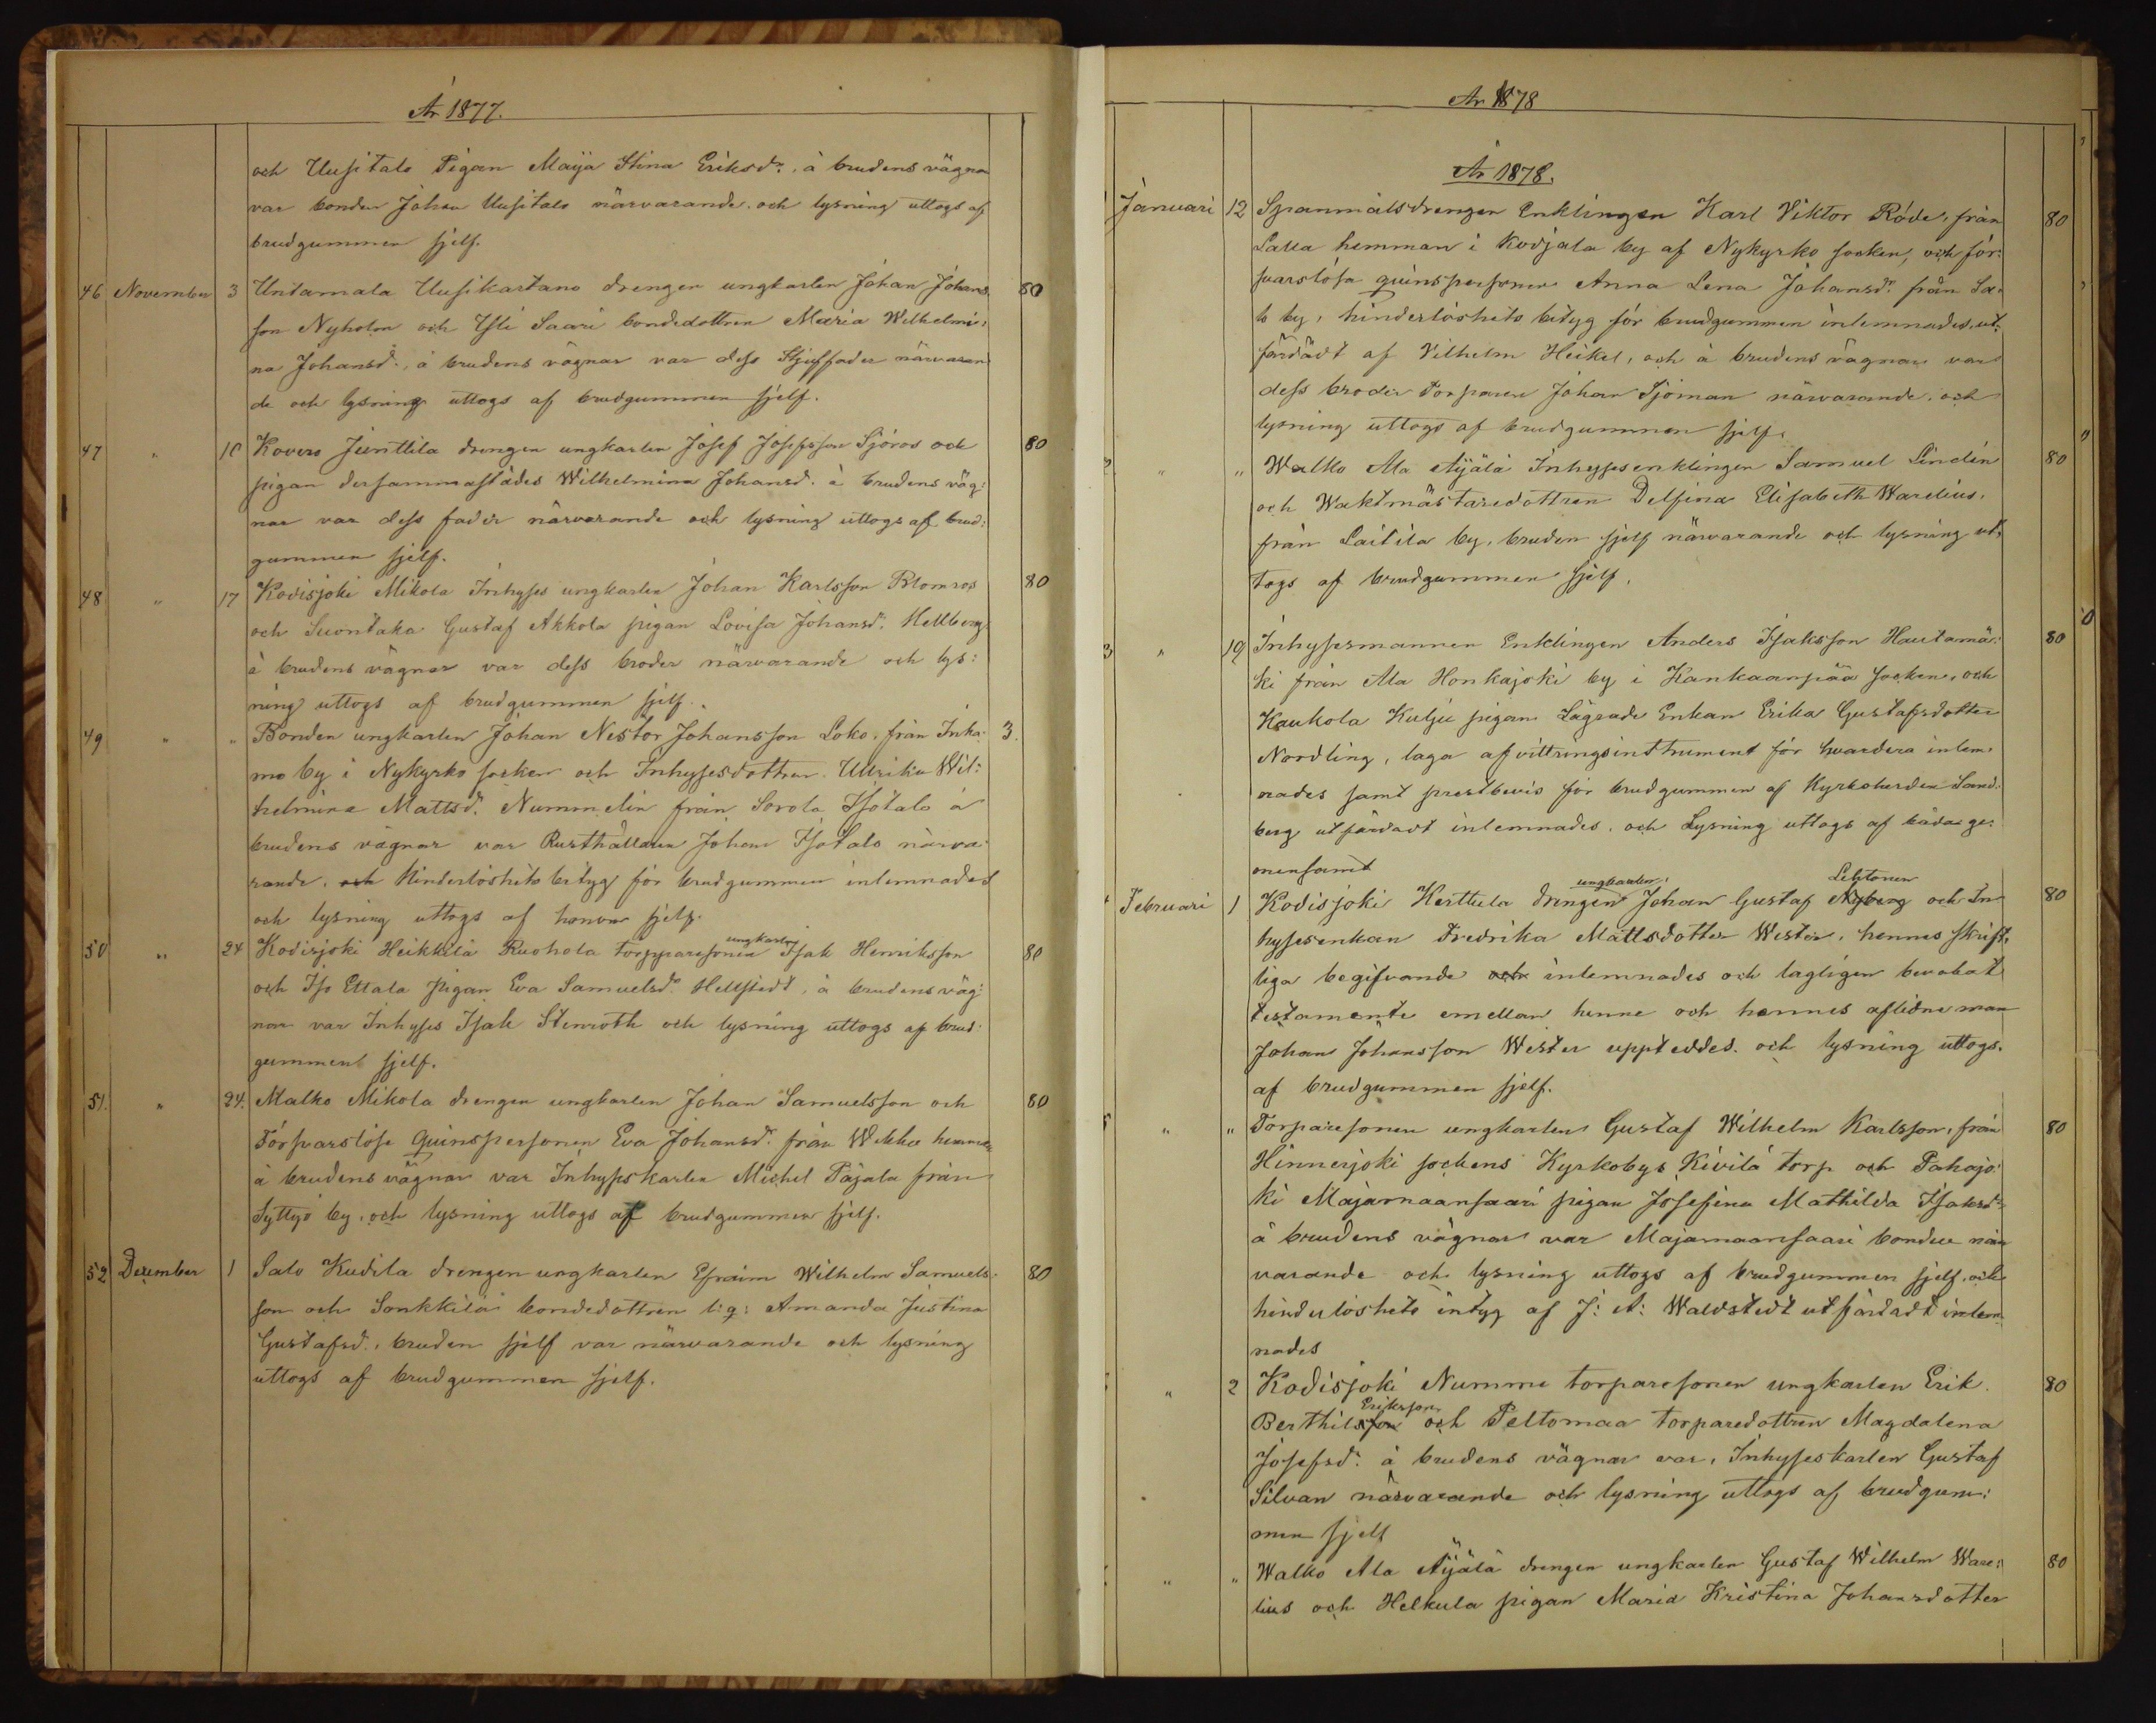 År 1877.
och Uusitalo Pigan Maija Stina Eriksdr. å brudens vägna
var bonden Johan Uusitalo närvarande och lysning uttogs af
brudgummen sjelf.
46 November 3 Untamala Uusikartano drengen ungkarlen Johan Johans 80
son Nyholm och Ylli Saari bondedottren Maria Wilhelmi:
na Johansd. å brudens vägnar var dess Stjuffader närvaran
de och lysning uttogs af brudgummen sjelf.
47 " 10 Kovero Junttila drengen ungkarlen Josef Josefsson Sjöros och 80
pigan dersammastädes Wilhelmina Johansd. å brudens väg:
nar var dess fader närvarande och lysning uttogs af brud:
gummen sjelf.
48 " 17 Kodisjoki Mikola Inhyses ungkarlen Johan Karlsson Blomros 80
och Suontaka Gustaf Akkola pigan Lovisa Johansdr. Hellberg
å brudens vägnar var dess broder närvarande och lys:
ning uttogs af brudgummen sjelf.
49 " " Bonden ungkarlen Johan Nestor Johansson Loko, från Inka 3.
mo by i Nykyrko socken och Inhysesdottren Ullrika Wil:
helmina Mattsdr. Nummelin från Sorola Isotalo å
brudens vägnar var Rusthållaren Johan Isotalo närva:
rande, och Hinderlöshets betyg för brudgummen inlemnades
och lysning uttogs af honom sjelf.
50 " 24 Kodisjoki Heikkilä Ruohola torpparesonen ungkarlen Isak Henriksson 80
och Iso Ettala pigan Eva Samuelsdr. Hellstedt, å brudens väg:
nar var Inhyses Isak Stenroth och lysning uttogs af brud:
gummen sjelf.
51. " 24. Malko Mikola drengen ungkarlen Johan Samuelsson och 80
Försvarslösa qvinspersonen Eva Johansdr. från Wekka hemma
å brudens vägnar var Inhyseskarlen Michel Pajala från
Syttyö by, och lysning uttogs af brudgummen sjelf.
52 December 1 Salo Kudila drengen ungkarlen Efraim Wilhelm Samuels: 80
son och Sonkkila bondedottren lig: Amanda Justina
Gustafsd. bruden sjelf var närvarande och lysning
uttogs af brudgummen sjelf.
År 1878
År 1878.
Januari 12 Spanmålsdrengen Enklingen Karl Viktor Röde, från 80
Lalla hemman i Kodjala by af Nykyrko socken, och för:
svarslösa qvinspersonen Anna Lena Johansdr. från Sa:
lo by, hinderlöshets betyg för brudgummen inlemnades, ut:
färdadt af Vilhelm Heikel, och å brudens vägnar var
dess broder Torparen Johan Sjöman närvarande, och
lysning uttogs af brudgummen sjelf.
" " Walko Ala Äijälä Inhysesenklingen Samuel Lindén 80
och Waktmästaredottren Delfina Elisabeth Warelius,
från Laitila by, bruden sjelf närvarande och lysning ut:
togs af brudgummen sjelf.
3 " 19 Inhysesmannen Enklingen Anders Isaksson Hautamä: 80
ki från Ala Honkajoki by i Kankaanpää socken, och
Kaukola Kulju pigan Lägrade Enkan Erika Gustafsdotter
Nordling, laga afvittringsinstrument för hvardera inlem:
nades samt prestbevis för brudgummen af Kyrkoherden Sand:
berg utfärdadt inlemnades, och Lysning uttogs af båda ge:
mensamt
Februari 1 Kodisjoki Herttula drengen ungkarlen, Johan Gustaf Nyberg Lehtonen och In 80
hysesenkan Fredrika Mattsdotter Wester, hennes skrift:
liga begifvande och inlemnades och lagligen bevakat
testamente emellan henne och hennes aflidne man
Johan Johansson Wester uppteddes. och lysning uttogs
af brudgummen sjelf.
" " Torparesonen ungkarlen Gustaf Wilhelm Karlsson, från 80
Hinnerjoki sockens Kyrkobys Kivilä torp och Pahajo:
ki Majamaansaari pigan Josefina Mathilda Isaksdr.
å brudens vägnar var Majamaansaari bonden när
varande och lysning uttogs af brudgummen sjelf, och
hinderlöshets intyg af J: A: Waldstedt utfärdadt inlem
nades
" 2 Kodisjoki Nummi torparesonen ungkarlen Erik 80
Berthilsson Eriksson och Peltomaa torparedottren Magdalena
Josefsdr. å brudens vägnar var, Inhyseskarlen Gustaf
Silvan närvarande och lysning uttogs af brudgum:
men sjelf
" " Walko Ala Äijälä drengen ungkarlen Gustaf Wilhelm Ware: 80
lius och Helkula pigan Maria Kristina Johansdotter